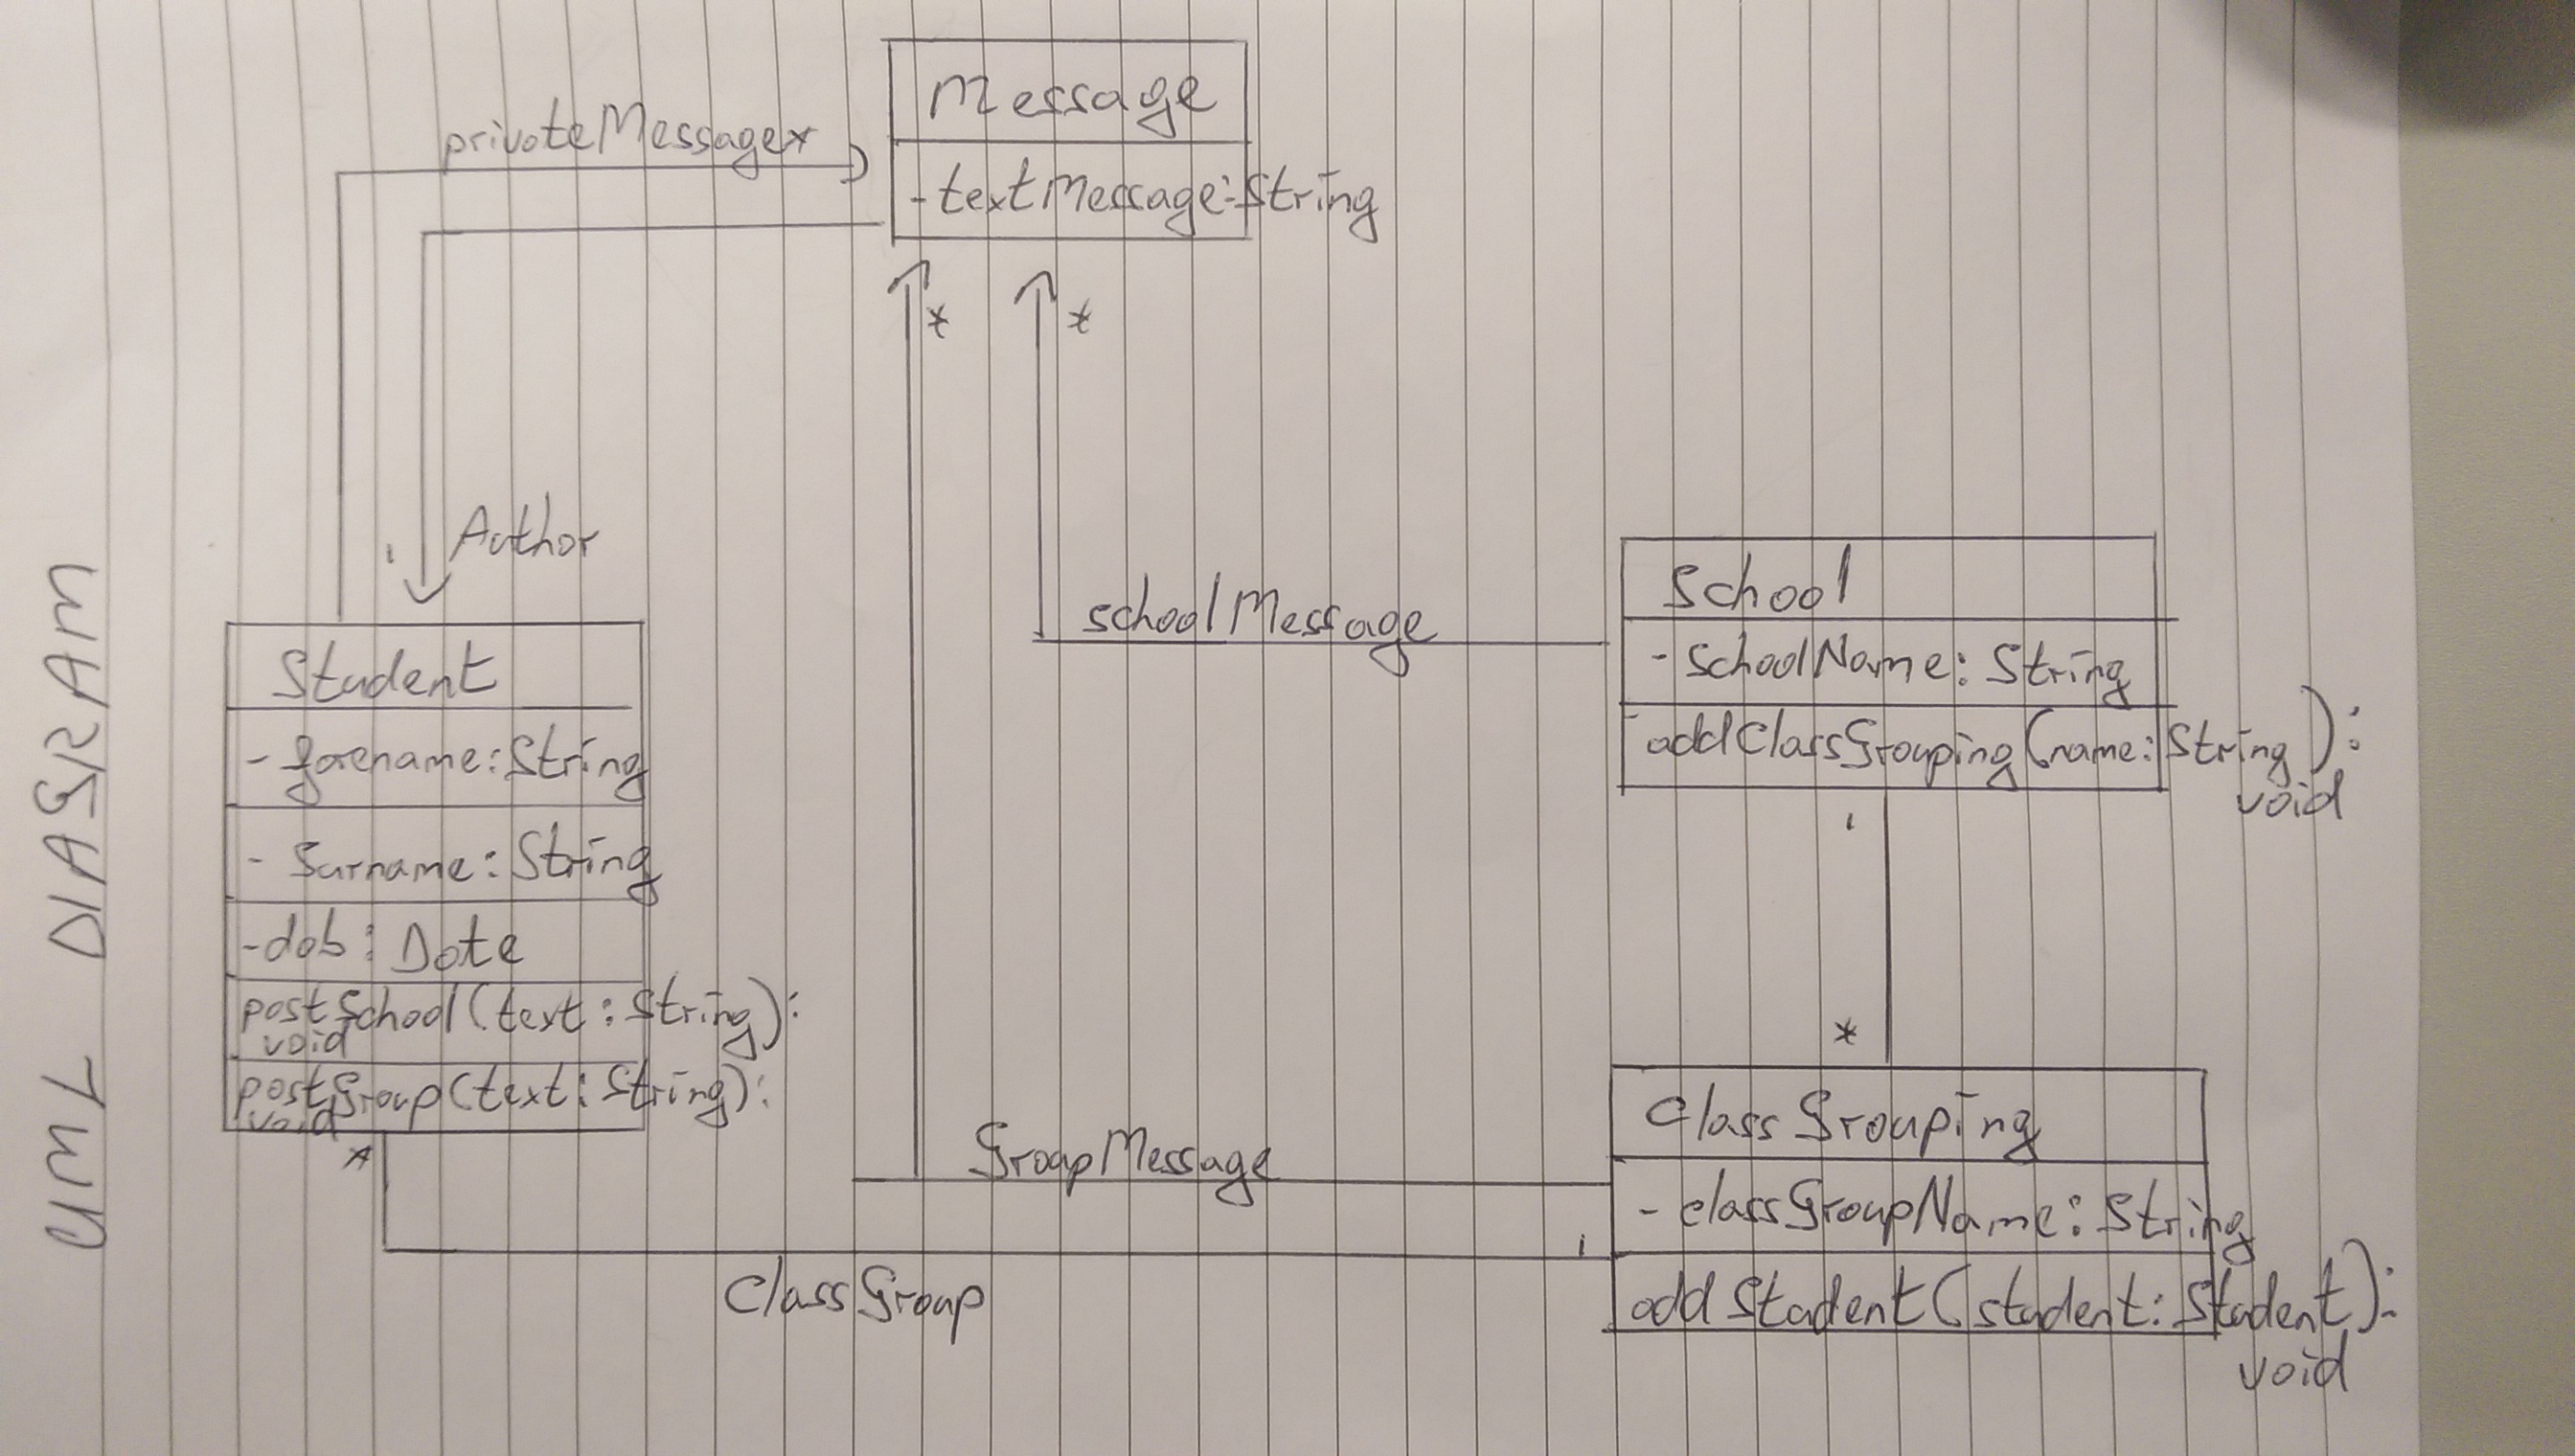 UML DIAGRAM
Message
- textMessage: String
privateMessage *
*
*
1
Author
Student
- forename: String
- Surname: String
- dob: Date
postSchool(text: String):
void
postGroup(text: String):
void
*
schoolMessage
School
- SchoolName: String
- addClassGrouping(name: String):
void
1
*
GroupMessage
ClassGrouping
- classGroupName: String
addStudent(student: Student):
void
1
ClassGroup